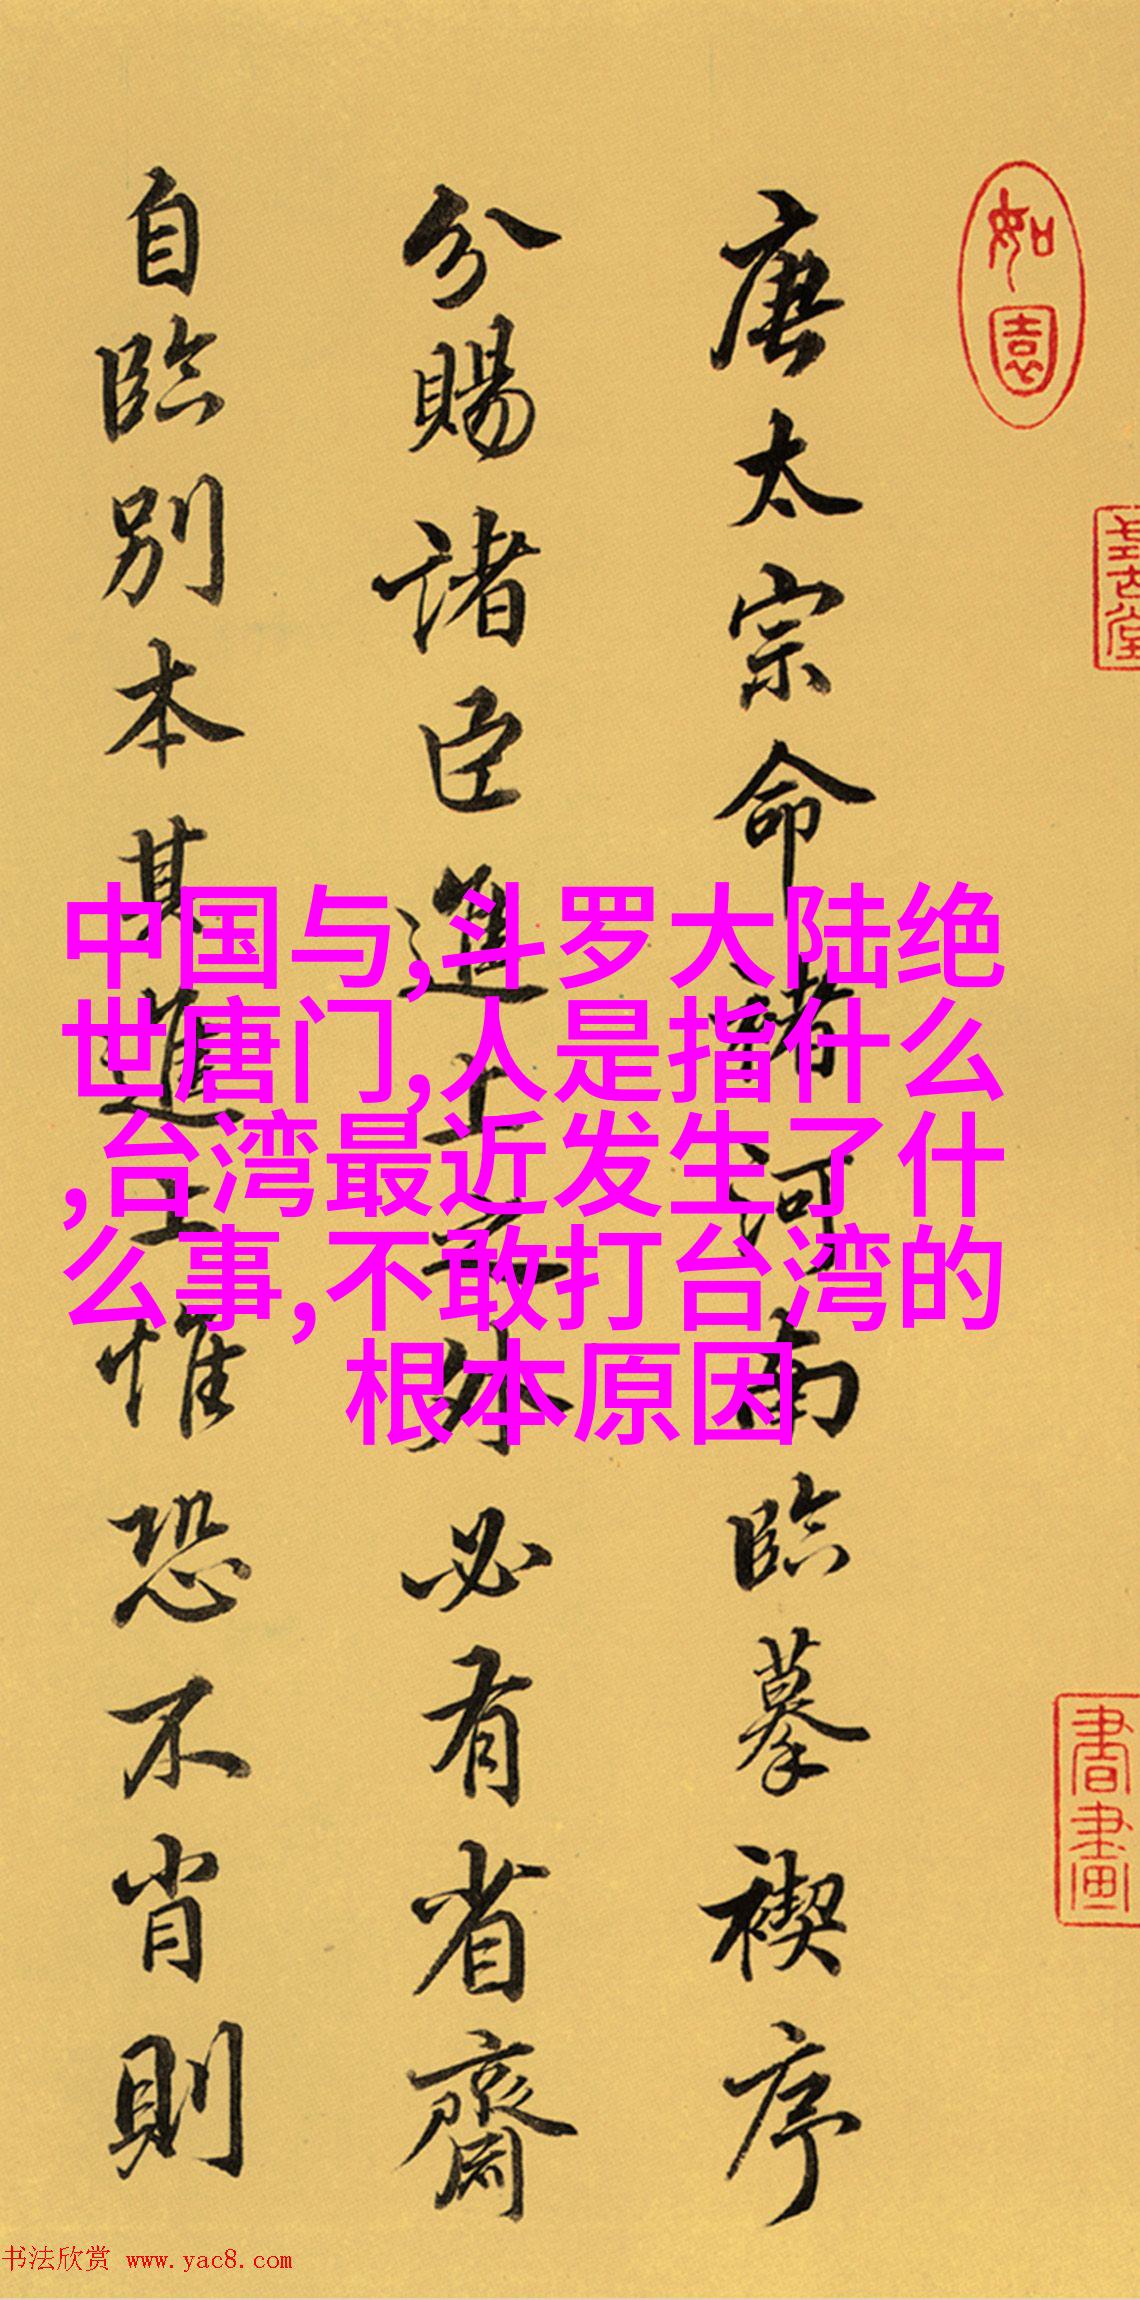 如園
書畫
唐太宗命諸河南臨摹禊序
分賜諸臣進上之外必有省齋
自臨別本其進上惟恐不肖則
中国与,斗罗大陆绝
世唐门,人是指什么
,台湾最近发生了什
么事,不敢打台湾的
根本原因
书法欣赏 www.yac8.com